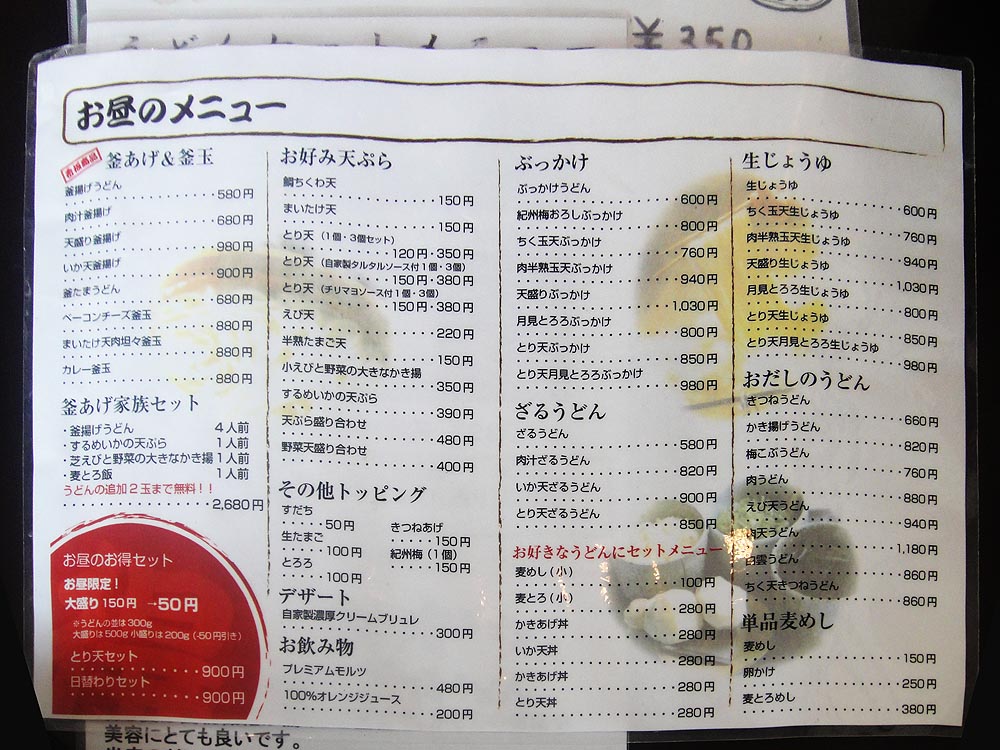 ¥350
お昼のメニュー
釜あげ&釜玉
釜揚げうどん
580円
肉汁釜揚げ
680円
天盛り釜揚げ
980円
いか天釜揚げ
900円
釜たまうどん
680円
ベーコンチーズ釜玉
880円
まいたけ天肉坦々釜玉
880円
カレー釜玉
880円
釜あげ家族セット
・釜揚げうどん 4人前
・するめいかの天ぷら 1人前
・芝えびと野菜の大きなかき揚 1人前
・麦とろ飯 1人前
うどんの追加2玉まで無料!!
2,680円
お昼のお得セット
お昼限定!
大盛り150円 →50円
※うどんの並は300g
大盛りは500g 小盛りは200g (-50円引き)
とり天セット
900円
日替わりセット
900円
お好み天ぷら
鯛ちくわ天
150円
まいたけ天
150円
とり天 (1個・3個セット)
120円・350円
とり天 (自家製タルタルソース付1個・3個)
150円・380円
とり天 (チリマヨソース付1個・3個)
150円・380円
えび天
220円
半熟たまご天
150円
小えびと野菜の大きなかき揚
350円
するめいかの天ぷら
390円
天ぷら盛り合わせ
480円
野菜天盛り合わせ
400円
その他トッピング
すだち
50円
生たまご
100円
とろろ
100円
きつねあげ
150円
紀州梅 (1個)
150円
デザート
自家製濃厚クリームブリュレ
300円
お飲み物
プレミアムモルツ
480円
100%オレンジジュース
200円
ぶっかけ
ぶっかけうどん
600円
紀州梅おろしぶっかけ
800円
ちく玉天ぶっかけ
760円
肉半熟玉天ぶっかけ
940円
天盛りぶっかけ
1,030円
月見とろろぶっかけ
800円
とり天ぶっかけ
850円
とり天月見とろろぶっかけ
980円
ざるうどん
ざるうどん
580円
肉汁ざるうどん
820円
いか天ざるうどん
900円
とり天ざるうどん
850円
お好きなうどんにセットメニュー
麦めし(小)
100円
麦とろ(小)
280円
かきあげ丼
280円
いか天丼
280円
かきあげ丼
280円
とり天丼
280円
生じょうゆ
生じょうゆ
600円
ちく玉天生じょうゆ
760円
肉半熟玉天生じょうゆ
940円
天盛り生じょうゆ
1,030円
月見とろろ生じょうゆ
800円
とり天生じょうゆ
850円
とり天月見とろろ生じょうゆ
980円
おだしのうどん
きつねうどん
660円
かき揚げうどん
820円
梅こぶうどん
760円
肉うどん
880円
えび天うどん
940円
肉天うどん
1,180円
白雲うどん
860円
ちく天きつねうどん
860円
単品麦めし
麦めし
150円
卵かけ
250円
麦とろめし
380円
美容にとても良いです。